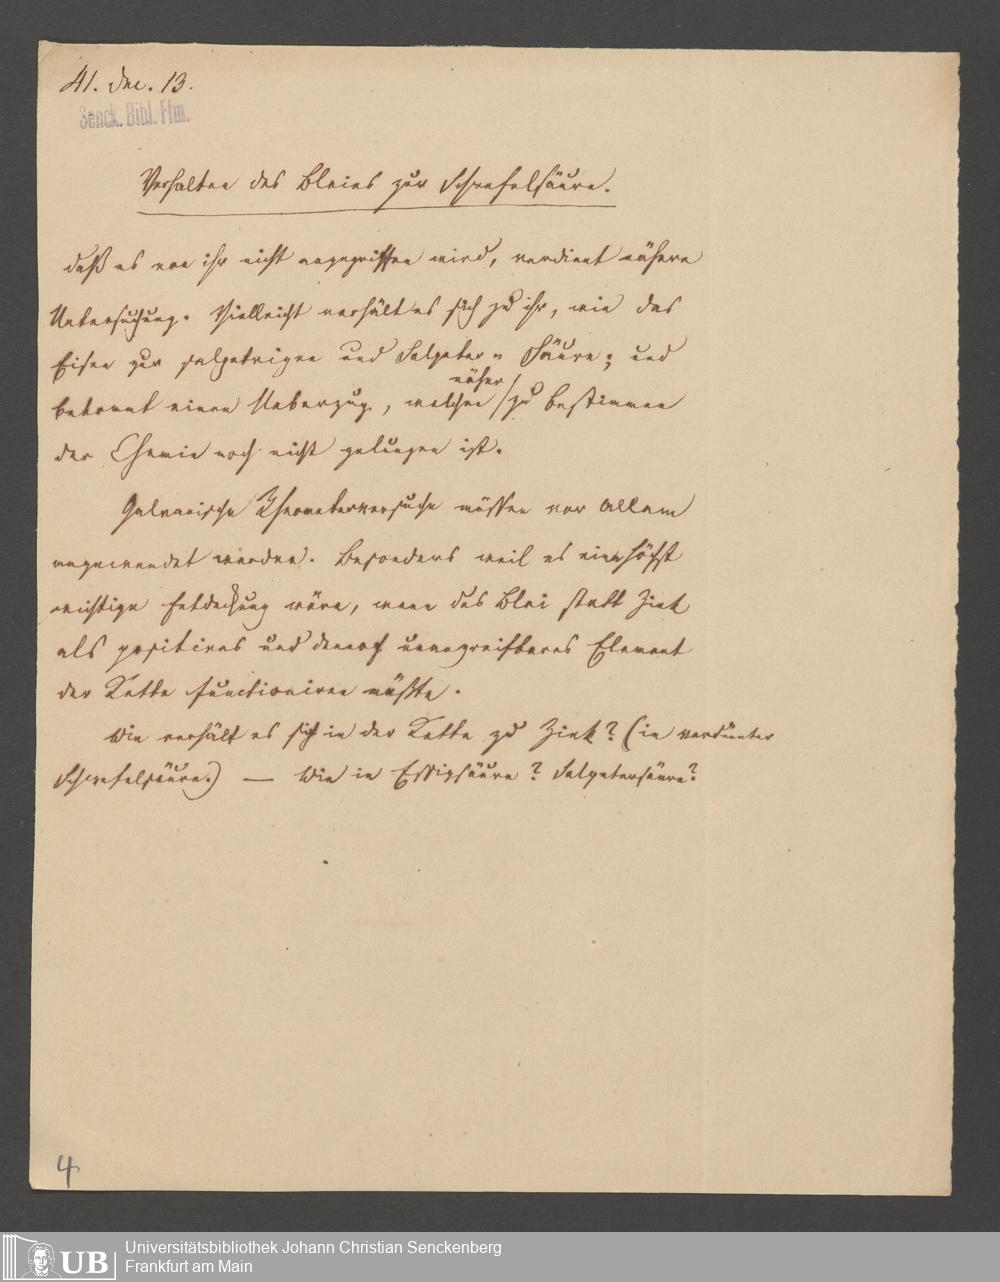 41. Dec. 13.
Senck. Bibl. Ffm.
Verhalten des Bleies zur Schwefelsäure.
daß es von ihr nicht angegriffen wird, verdient nähere
Untersuchung. Vielleicht verhält es sich zu ihr, wie das
Eisen zur salpetrigen und Salpeter = Säure; und
näher
bekommt einen Ueberzug, welchen / zu bestimmen
der Chemie noch nicht gelungen ist.
Galvanische Rheometerversuche müssen vor allem
angewendet werden. Besonders weil es eine höchst
wichtige Entdeckung wäre, wenn das Blei statt Zink
als positives und dennoch unangreifbares Element
der Kette functioniren müßte.
Wie verhält es sich in der Kette zu Zink? (in verdünnter
Schwefelsäure.) — Wie in Essigsäure? Salpetersäure?
4
UB
Universitätsbibliothek Johann Christian Senckenberg
Frankfurt am Main